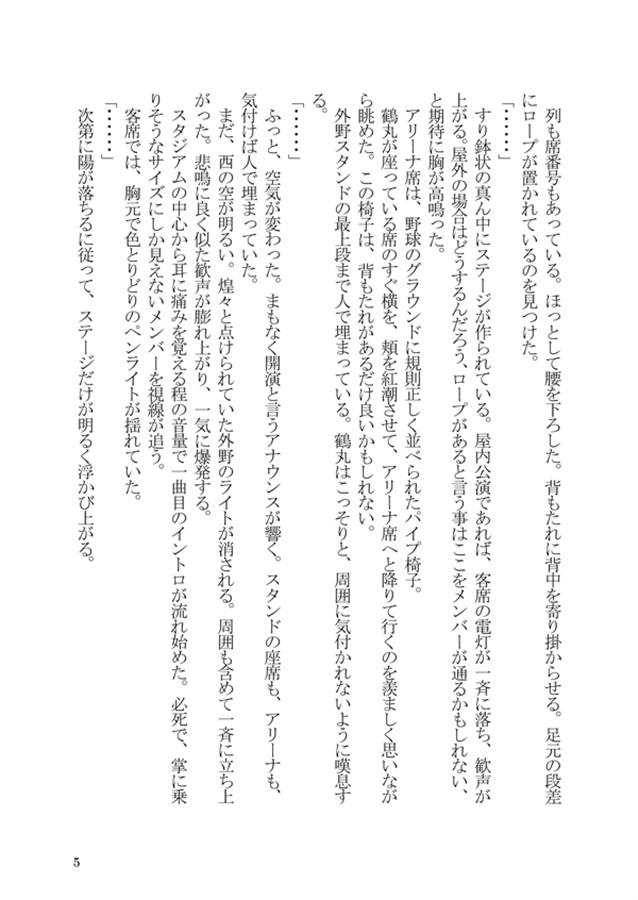 列も席番号もあっている。ほっとして腰を下ろした。背もたれに背中を寄り掛からせる。足元の段差
にロープが置かれているのを見つけた。
「・・・・・・」
すり鉢状の真ん中にステージが作られている。屋内公演であれば、客席の電灯が一斉に落ち、歓声が
上がる。屋外の場合はどうするんだろう、ロープがあると言う事はここをメンバーが通るかもしれない、
と期待に胸が高鳴った。
アリーナ席は、野球のグラウンドに規則正しく並べられたパイプ椅子。
鶴丸が座っている席のすぐ横を、頬を紅潮させて、アリーナ席へと降りて行くのを羨ましく思いなが
ら眺めた。この椅子は、背もたれがあるだけ良いかもしれない。
外野スタンドの最上段まで人で埋まっている。鶴丸はこっそりと、周囲に気付かれないように嘆息す
る。
「・・・・・・」
ふっと、空気が変わった。まもなく開演と言うアナウンスが響く。スタンドの座席も、アリーナも、
気付けば人で埋まっていた。
まだ、西の空が明るい。煌々と点けられていた外野のライトが消される。周囲も含めて一斉に立ち上
がった。悲鳴に良く似た歓声が膨れ上がり、一気に爆発する。
スタジアムの中心から耳に痛みを覚える程の音量で一曲目のイントロが流れ始めた。必死で、掌に乗
りそうなサイズにしか見えないメンバーを視線が追う。
客席では、胸元で色とりどりのペンライトが揺れていた。
「・・・・・・」
次第に陽が落ちるに従って、ステージだけが明るく浮かび上がる。
5